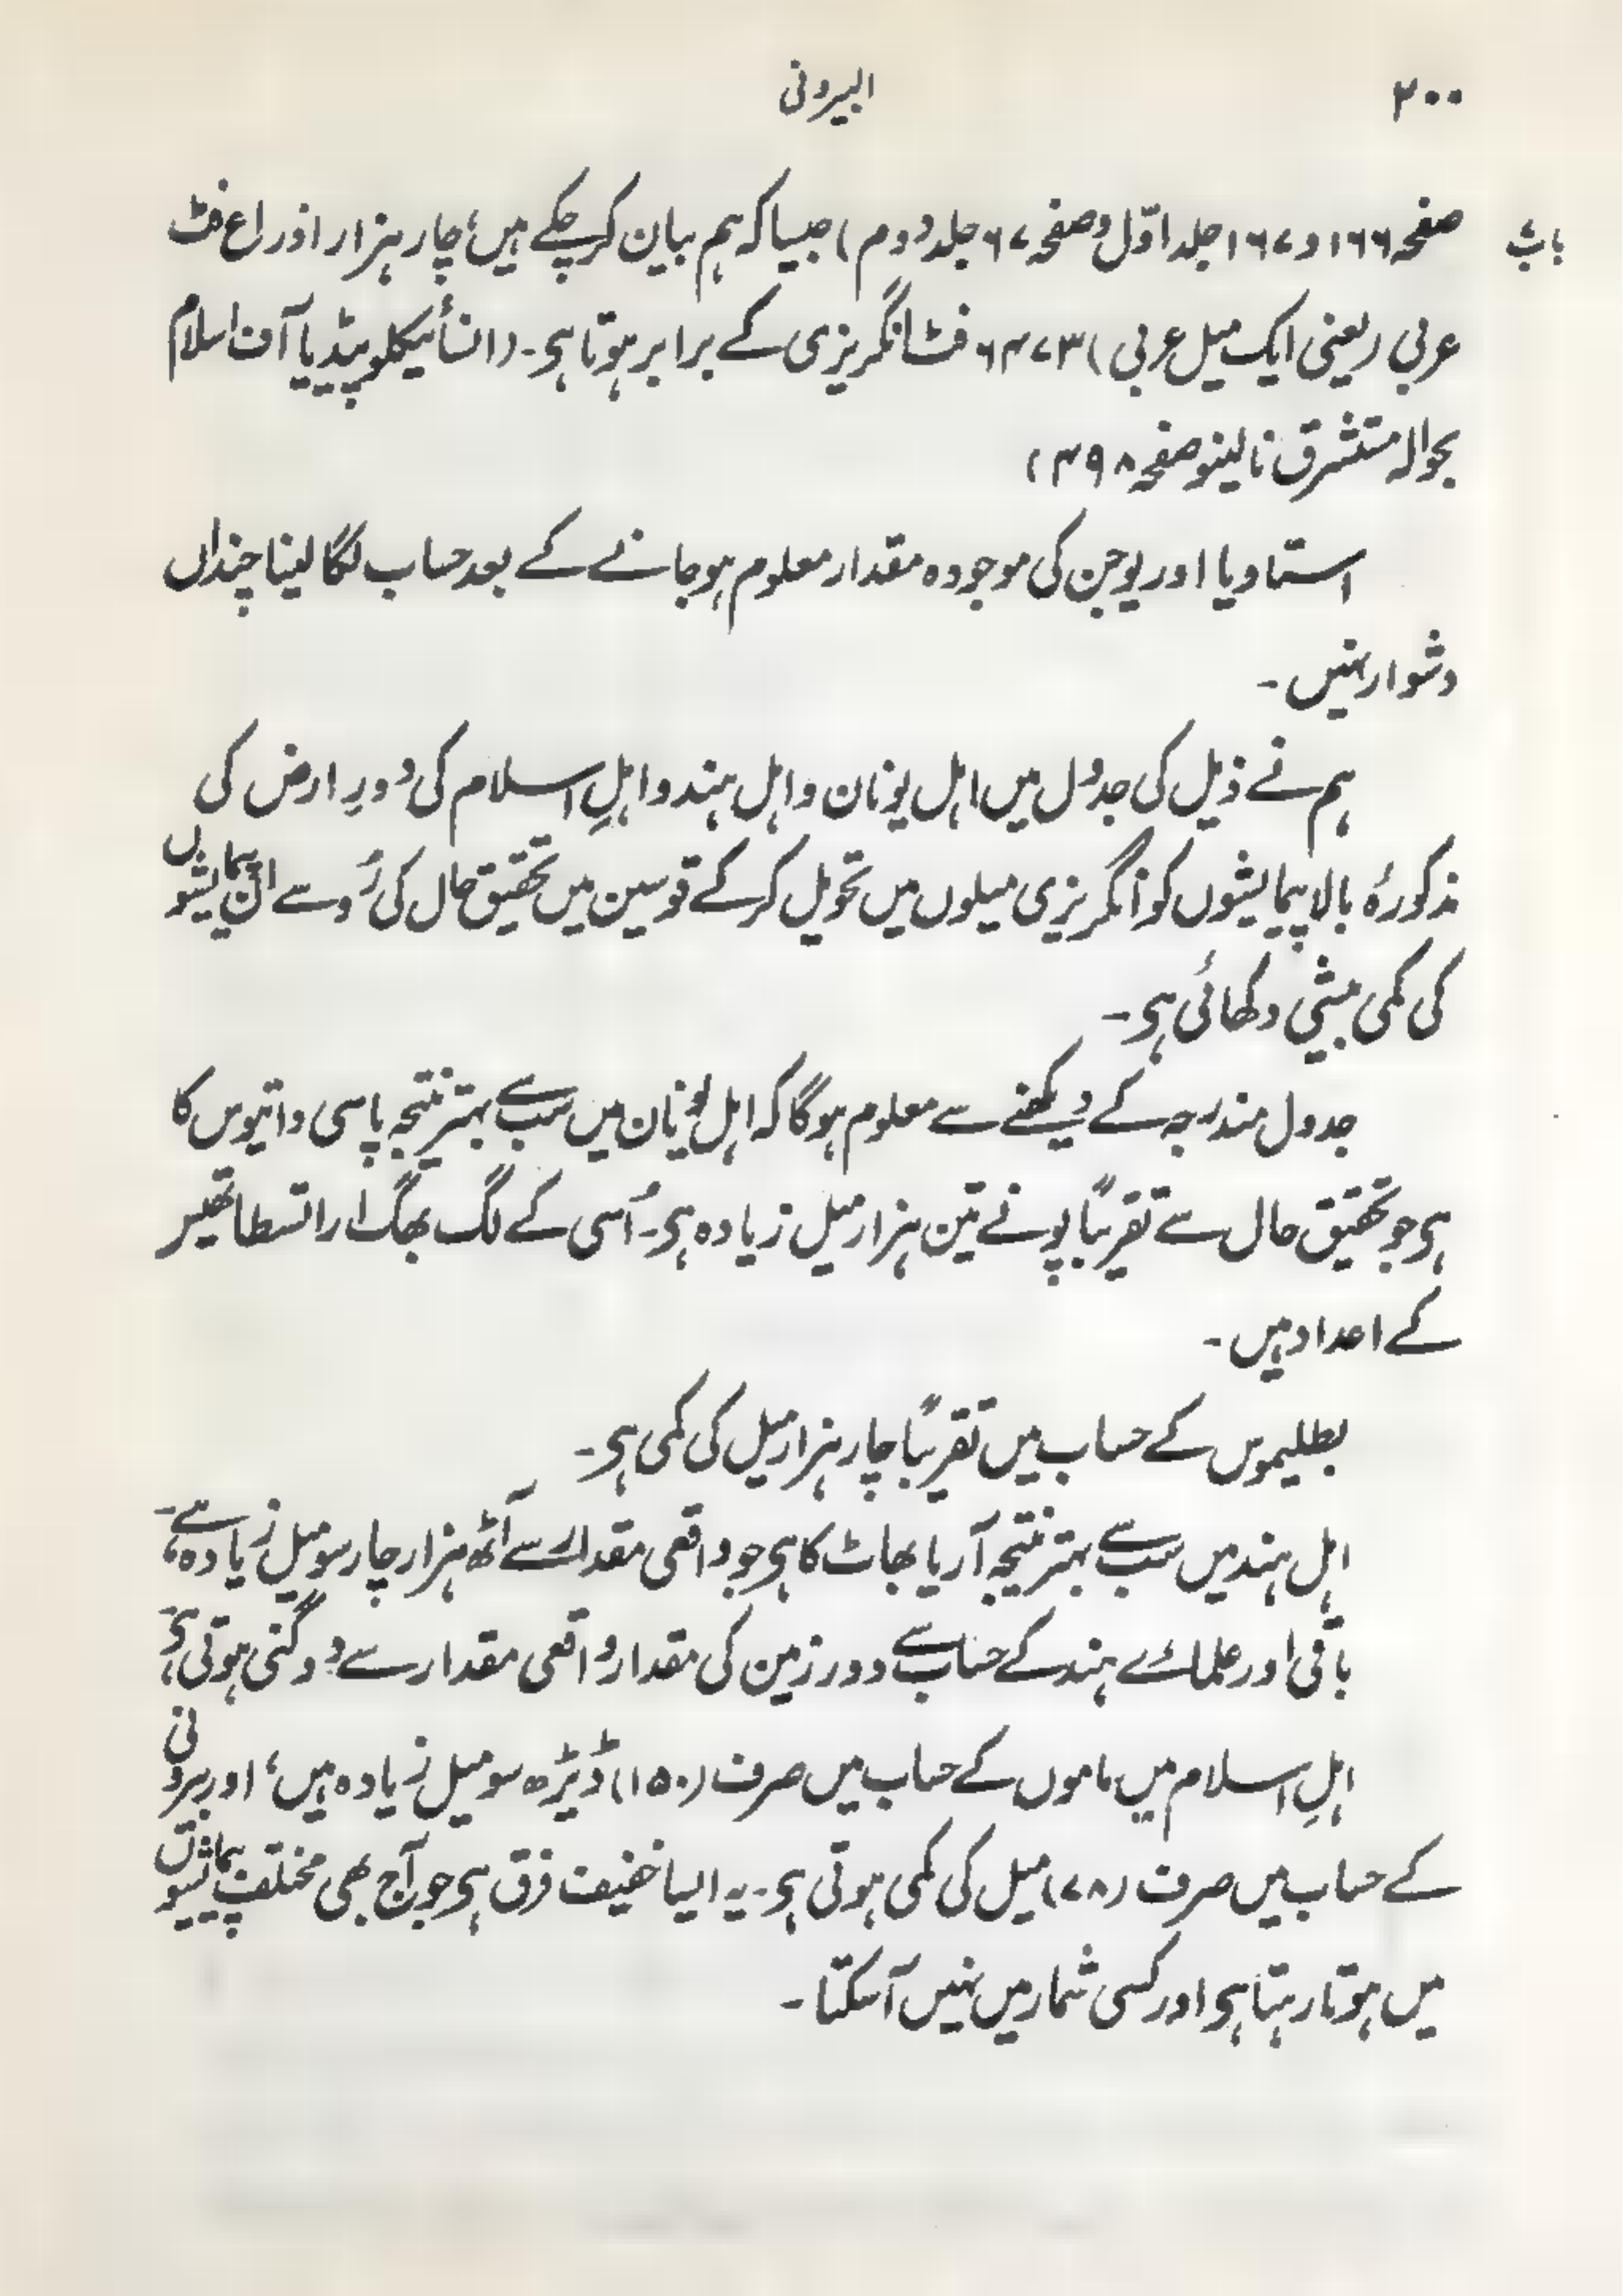 ۲۰۰
البیرونی
باب
صفحہ ۱۶۶ و ۱۶۷ جلد اوّل و صفحہ ۶۷ جلد دوم) جیسا کہ ہم بیان کر چکے ہیں، چار ہزار اذراع فٹ
عربی (یعنی ایک میل عربی) ۶۴۷۳ فٹ انگریزی کے برابر ہوتا ہی۔ (انسائیکلوپیڈیا آف اسلام
بحوالہ مستشرق نالینو صفحہ ۴۹۸)
استادیا اور یوجن کی موجودہ مقدار معلوم ہو جانے کے بعد حساب لگا لینا چنداں
دشوار نہیں۔
ہم نے ذیل کی جدول میں اہل یونان و اہل ہند و اہلِ اسلام کی دورِ ارض کی
مذکورۂ بالا پیمایشوں کو انگریزی میلوں میں تحویل کر کے قوسین میں تحقیق حال کی رُو سے اُن پیمایشوں
کی کمی بیشی دکھائی ہی۔
جدول مندرجہ کے دیکھنے سے معلوم ہوگا کہ اہل یونان میں سب سے بہتر نتیجہ پاسی دانیوس کا
ہی جو تحقیق حال سے تقریباً پونے تین ہزار میل زیادہ ہی۔ اُسی کے لگ بھگ اراتسطاتھیر
کے اعداد ہیں۔
بطلیموس کے حساب میں تقریباً چار ہزار میل کی کمی ہی۔
اہل ہند میں سب سے بہتر نتیجہ آریا بھاٹ کا ہی جو واقعی مقدار سے آٹھ ہزار چار سو میل زیادہ ہے،
باقی اور علمائے ہند کے حساب سے دور زمین کی مقدار واقعی مقدار سے دو گنی ہوتی ہی،
اہلِ اسلام میں ماموں کے حساب میں صرف (۱۵۰) ڈیڑھ سو میل زیادہ ہیں، اور بیرونی
کے حساب میں صرف (۷۸) میل کی کمی ہوتی ہی۔ یہ ایسا خفیف فرق ہی جو آج بھی مختلف پیمائیشوں
میں ہوتا رہتا ہی اور کسی شمار میں نہیں آسکتا۔